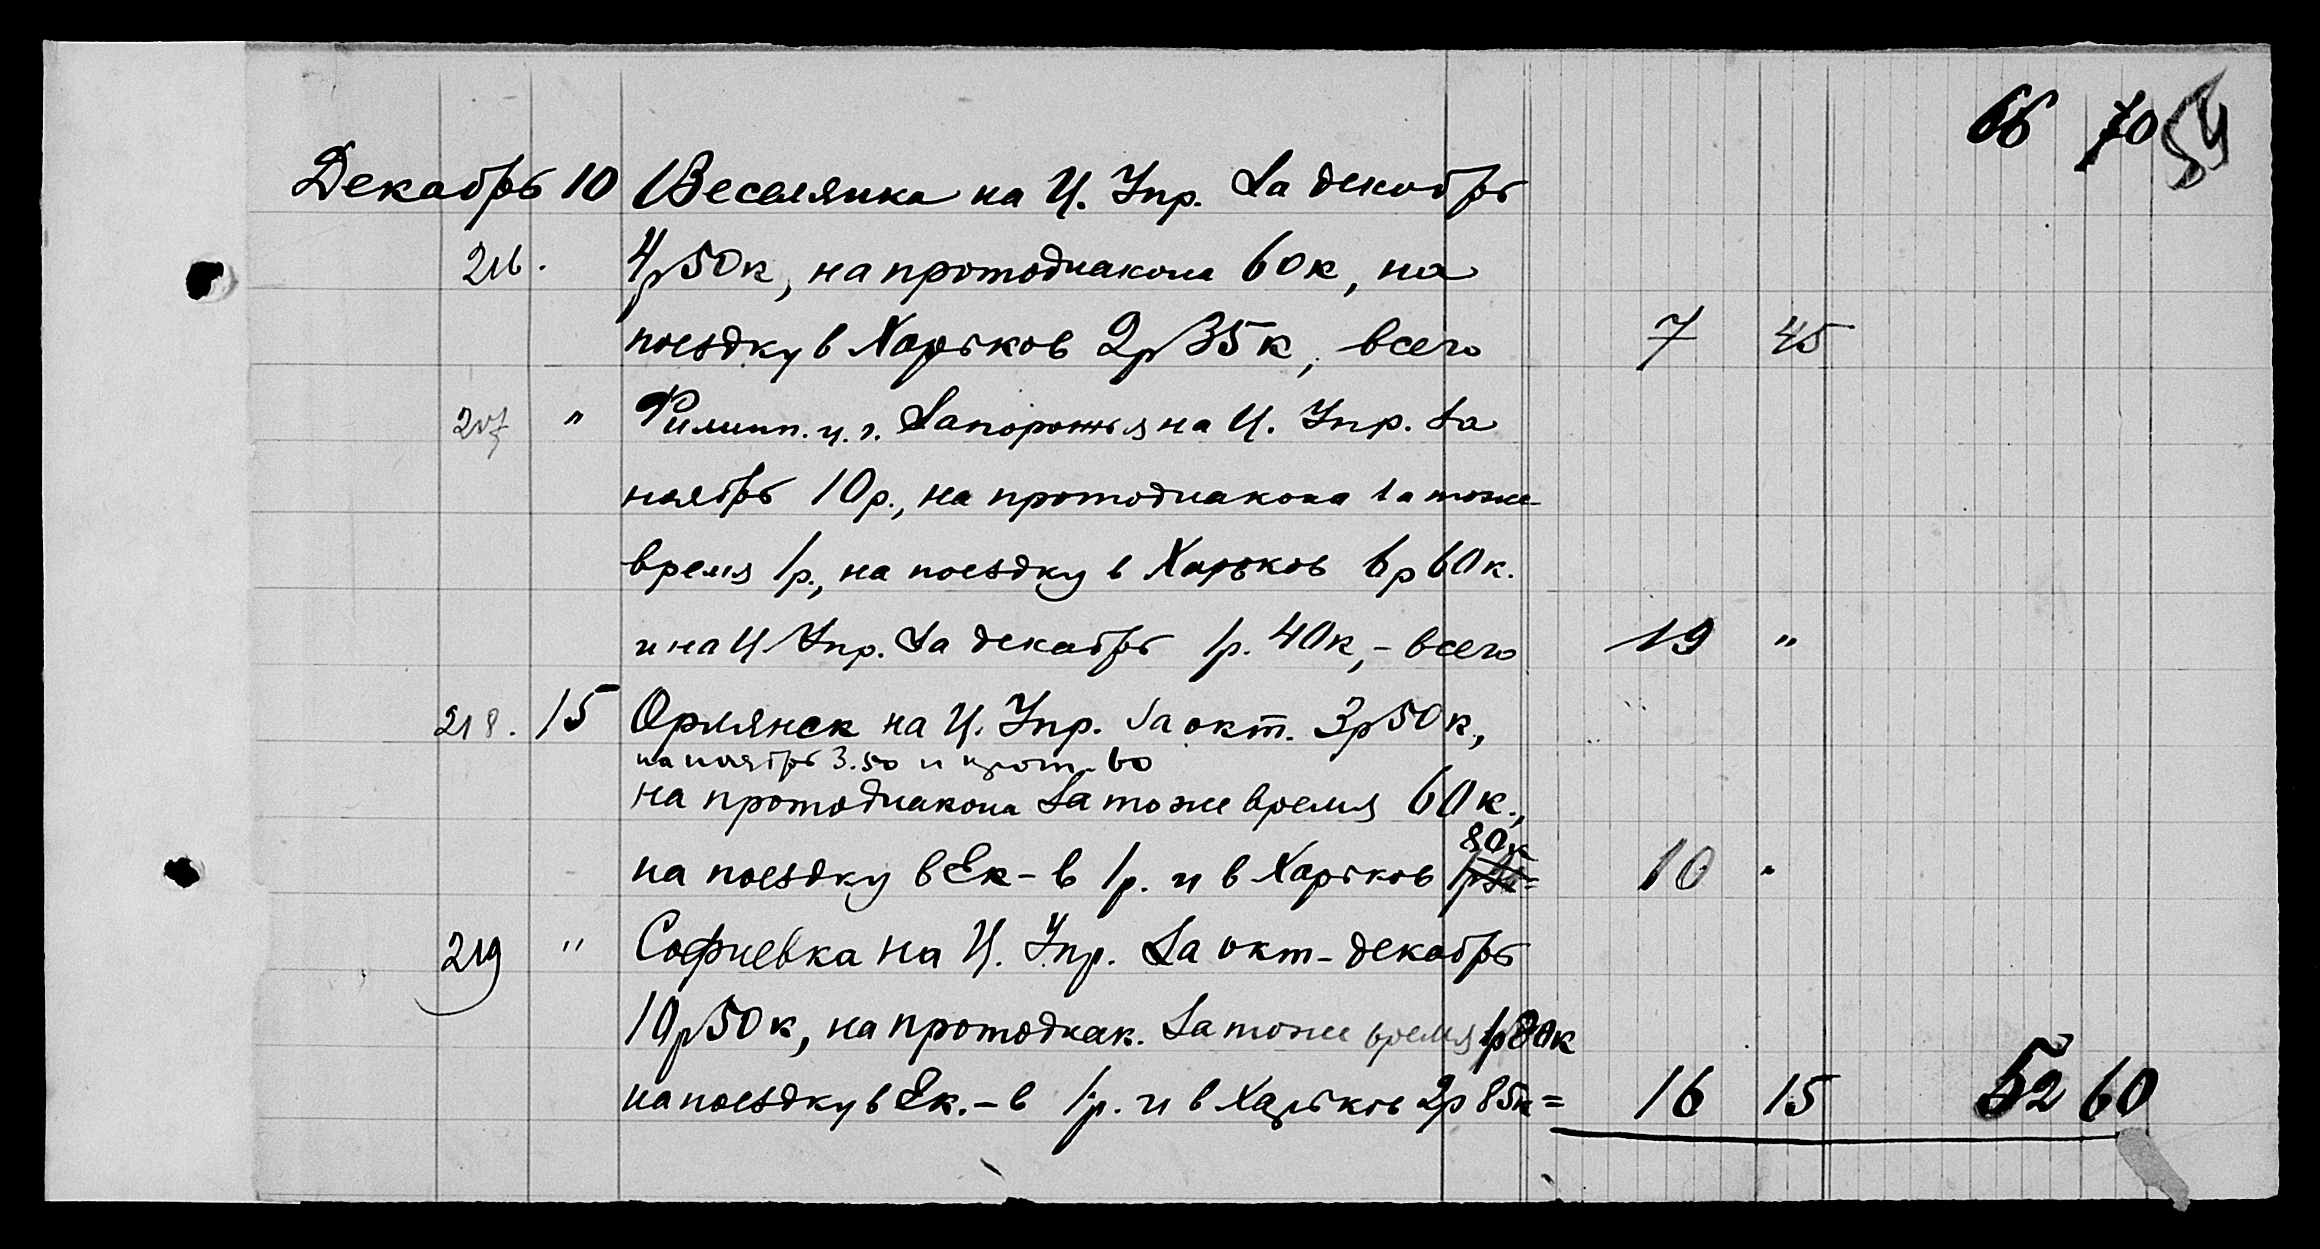 66 70 54
Декабрь 10 Веселянка на Ц. Упр. за декабрь
216. 4р50к, на протодиакона 60к, на
поездку в Харьков 2р35к, всего 7 45
217 " Филипп. ц. г. Запорожья на Ц. Упр. за
ноябрь 10р., на протодиакона за тоже
время 1р., на поездку в Харьков 6р60к.
и на Ц Упр. за декабрь 1р. 40к, - всего 19 "
218. 15 Орлянск на Ц. Упр. за окт. 3р50к,
на ноябрь 3.50 и прот. 60
на протодиакона за тоже время 60к.,
80к
на поездку в Ек-в 1р. и в Харьков = 10 "
219 " Софиевка на Ц. Упр. за окт-декабрь
10р50к, на протодиак. за тоже время 1р80к
на поездку в Ек.-в 1р. и в Харьков 2р85к= 16 15 52 60